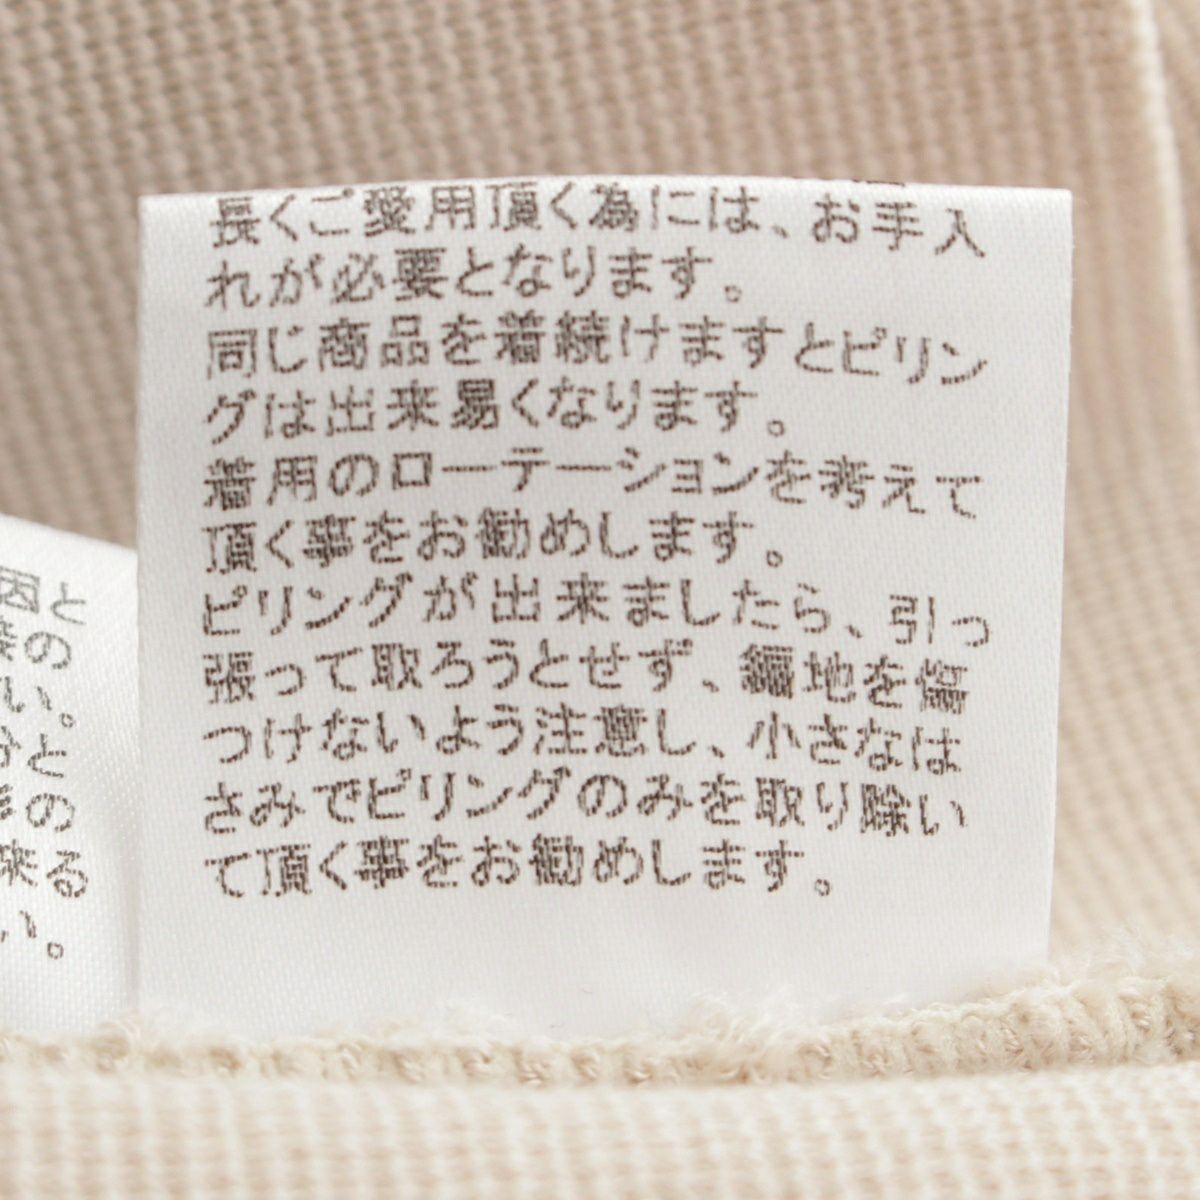 長くご愛用頂く為には、お手入
れが必要となります。
同じ商品を着続けますとピリン
グは出来易くなります。
着用のローテーションを考えて
頂く事をお勧めします。
ピリングが出来ましたら、引っ
張って取ろうとせず、編地を傷
つけないよう注意し、小さなは
さみでピリングのみを取り除い
て頂く事をお勧めします。
因と
の
い。
分と
の
来る
い。